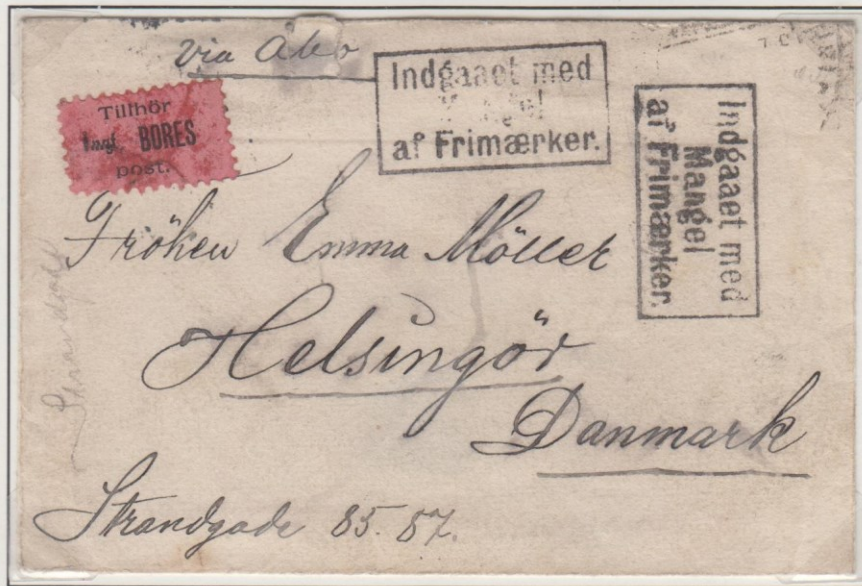 via Åbo
Tillhör
BORES
post.
Indgaaet med
Mangel
af Frimærker.
Indgaaet med
Mangel
af Frimærker.
Fröken Emma Möller
Helsingör
Danmark
Strandgade 85. 87.